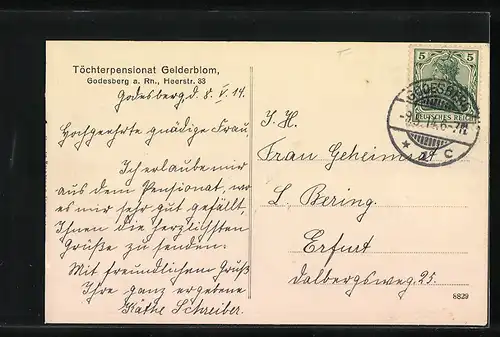 Töchterpensionat Gelderblom,
Godesberg a. Rn., Heerstr. 33
Godesberg d. 8. V. 14.
Hochgeehrte gnädige Frau,
Ich erlaube mir
aus dem Pensionat, wo
es mir sehr gut gefällt,
Ihnen die herzlichsten
Grüße zu senden.
Mit freundlichem Gruß
Ihre ganz ergebene
Käthe Schreiber.
5 5
DEUTSCHES REICH
GODESBERG
* c
I. H.
Frau Geheimrat
L. Bering
Erfurt
Dalbergsweg. 25.
8829